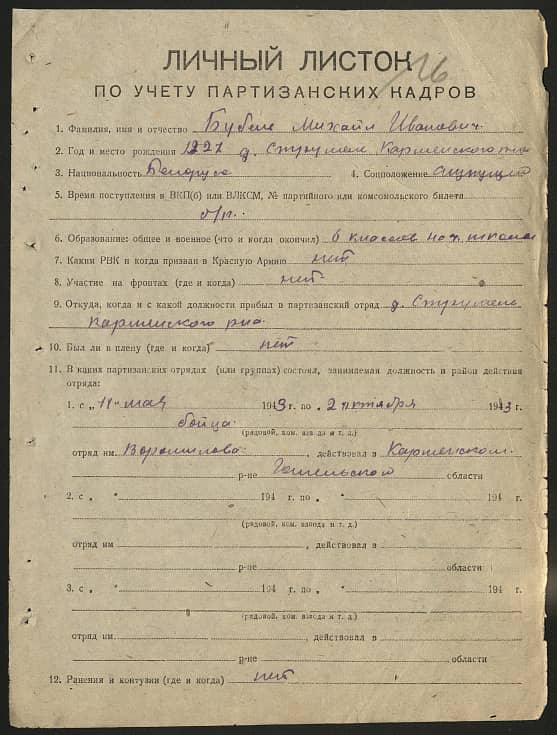 ЛИЧНЫЙ ЛИСТОК
16
ПО УЧЕТУ ПАРТИЗАНСКИХ КАДРОВ
1. Фамилия, имя и отчество Михаил Иванович
2. Год и место рождения 1927 д. Струмень Кормянского р-на
3. Национальность Белорус 4. Соцположение
5. Время поступления в ВКП(б) или ВЛКСМ, № партийного или комсомольского билета
б/п.
6. Образование: общее и военное (что и когда окончил) 6 классов школы
7. Каким РВК и когда призван в Красную Армию нет
8. Участие на фронтах (где и когда) нет
9. Откуда, когда и с какой должности прибыл в партизанский отряд д. Струмень
Кормянского р-на
10. Был ли в плену (где и когда) нет
11. В каких партизанских отрядах (или группах) состоял, занимаемая должность и район действия
отряда:
1. с „ мая 1943 г. по „ 2 октября 1943 г.
бойца
(рядовой, ком. взвода и т. д.)
отряд им. Ворошилова, действовал в Кормянском
р-не Гомельской области
2. с „ " 194 г. по „ " 194 г.
(рядовой, ком. взвода и т. д.)
отряд им , действовал в
р-не области
3. с „ " 194 г. по „ " 194 г.
(рядовой, ком. взвода и т. д.)
отряд им. , действовал в
р-не области
12. Ранения и контузии (где и когда) нет